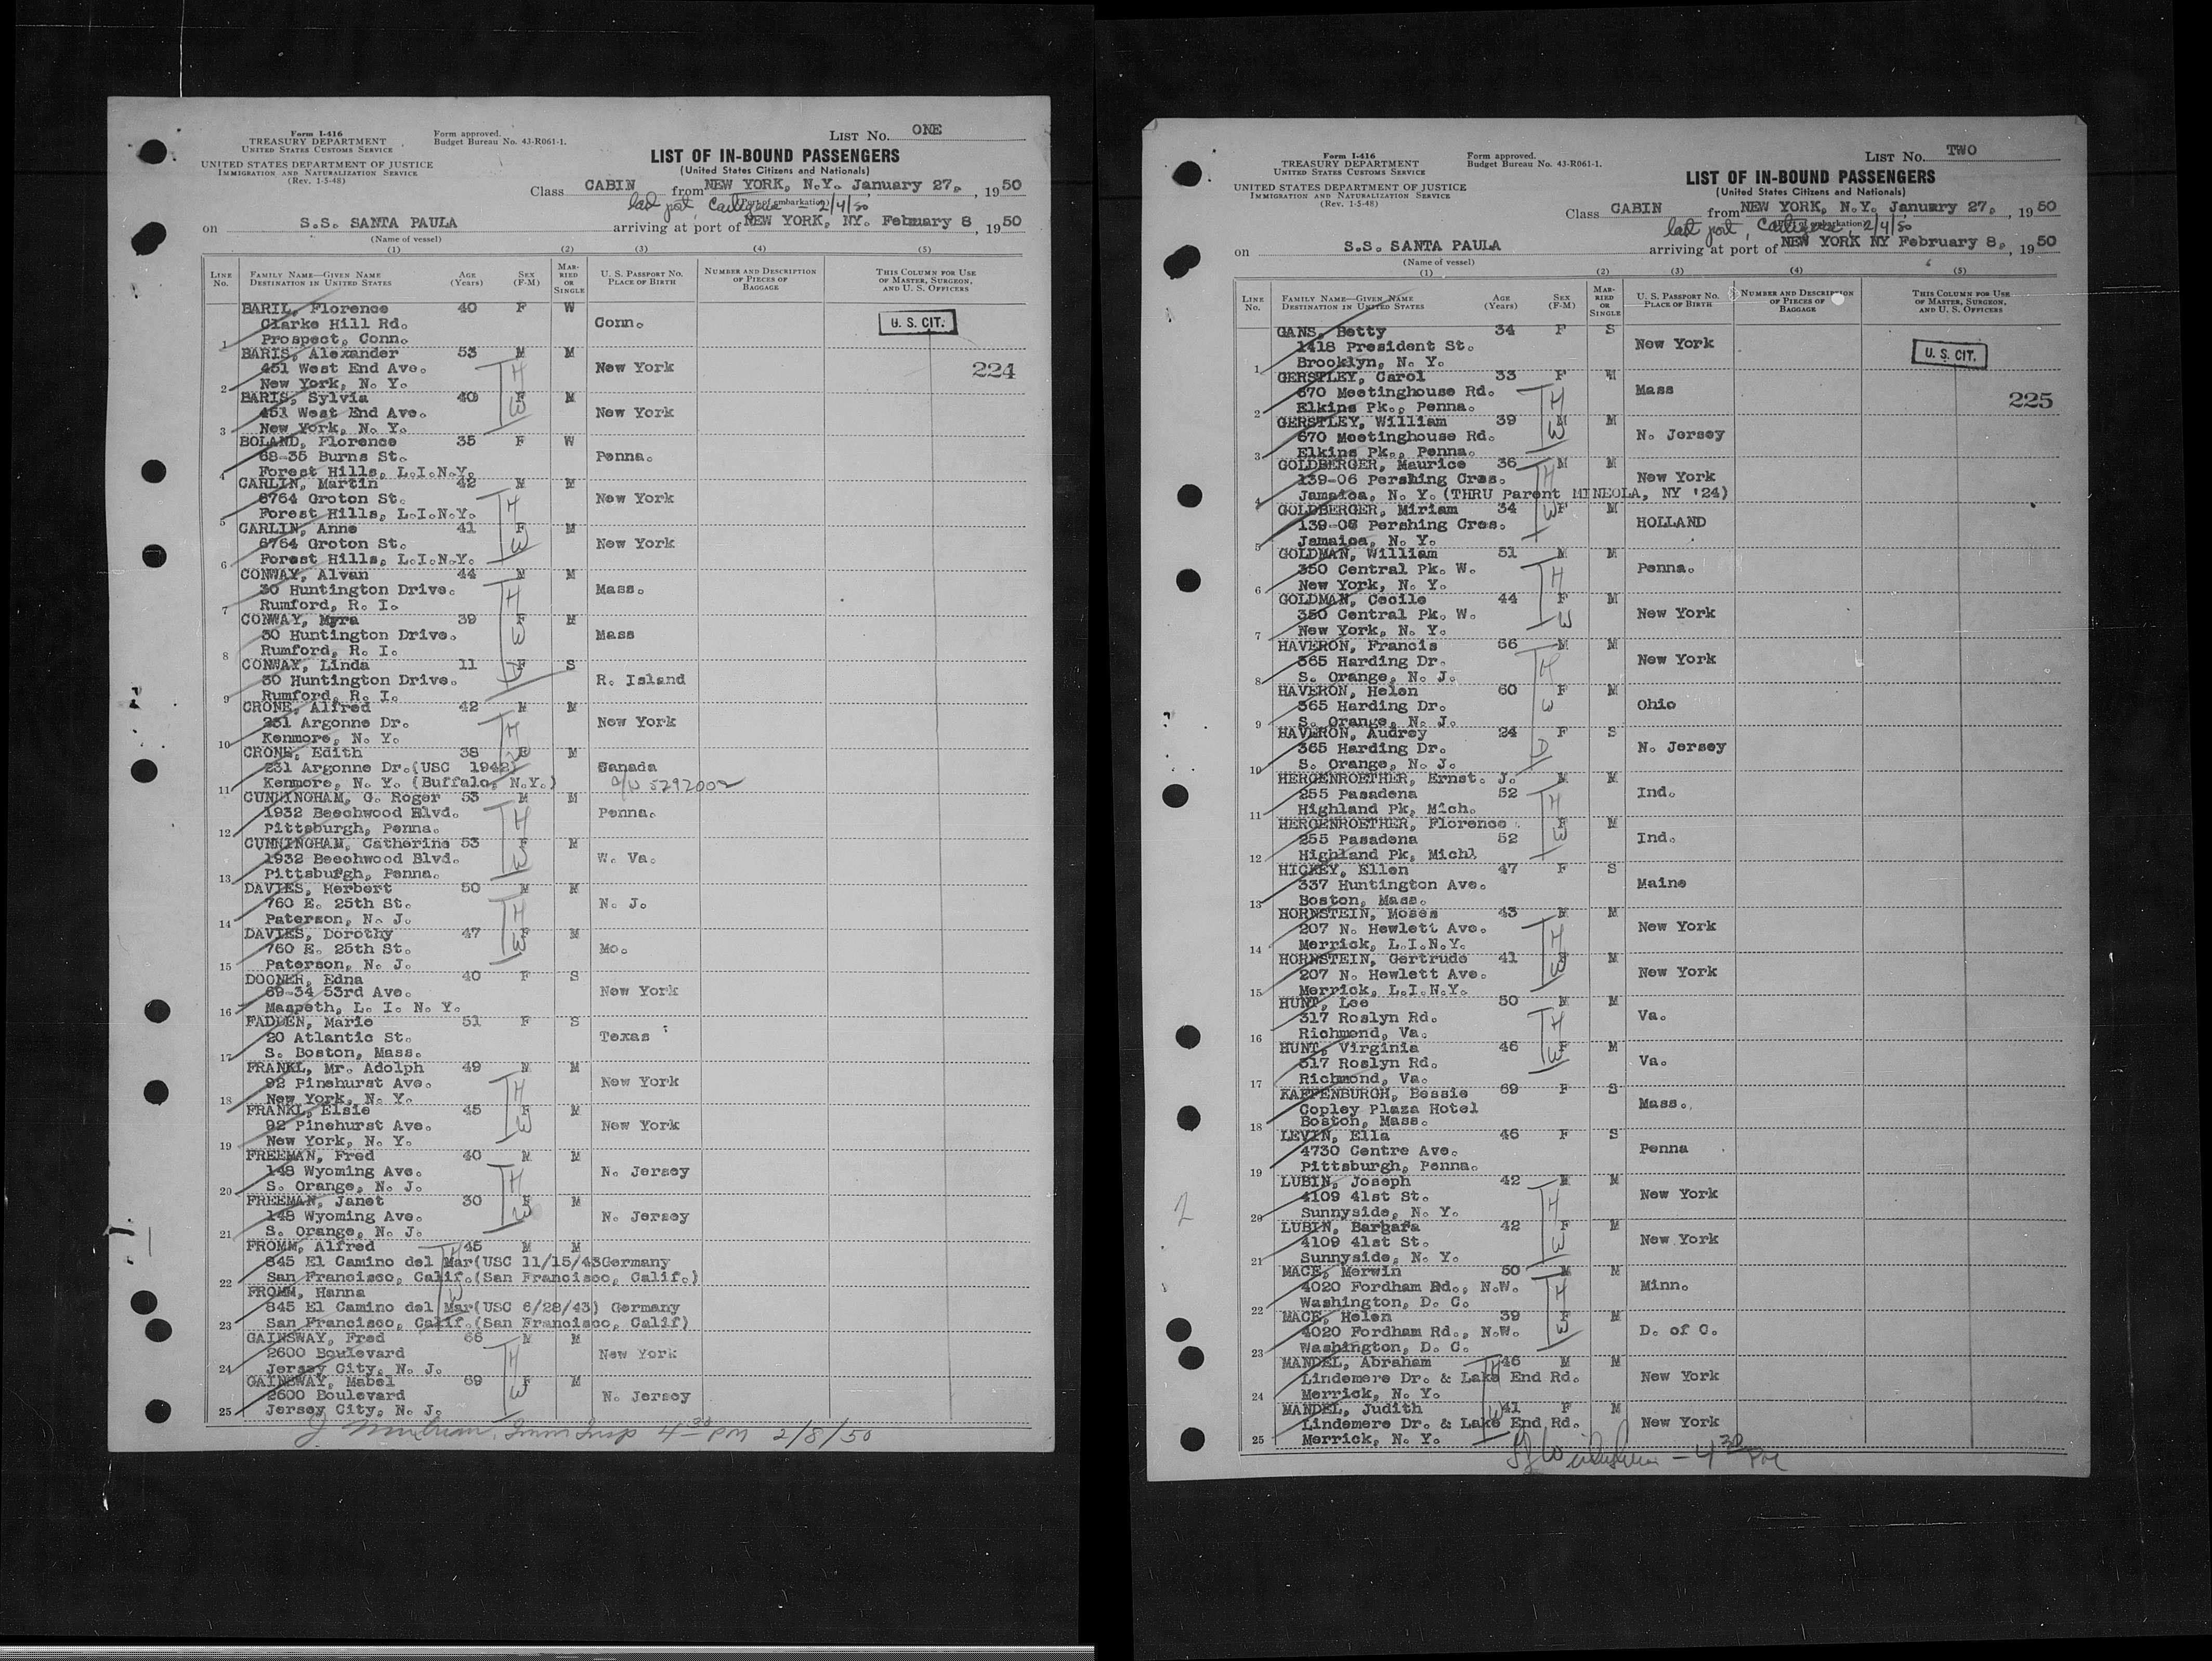 Form I-416
TREASURY DEPARTMENT
UNITED STATES CUSTOMS SERVICE
UNITED STATES DEPARTMENT OF JUSTICE
IMMIGRATION AND NATURALIZATION SERVICE
(Rev. 1-5-48)
Form approved.
Budget Bureau No. 43-R061-1.
LIST NO. ONE
LIST OF IN-BOUND PASSENGERS
(United States Citizens and Nationals)
Class CABIN from NEW YORK, N.Y. January 27, , 1950
(Port of embarkation)
last port, Cartagena - 2/4/50
on S.S. SANTA PAULA arriving at port of NEW YORK, NY. February 8 , 1950
(Name of vessel)
(1) (2) (3) (4) (5)
LINE NO. FAMILY NAME—GIVEN NAME DESTINATION IN UNITED STATES AGE (Years) SEX (F-M) MARRIED OR SINGLE U. S. PASSPORT NO. PLACE OF BIRTH NUMBER AND DESCRIPTION OF PIECES OF BAGGAGE THIS COLUMN FOR USE OF MASTER, SURGEON, AND U. S. OFFICERS
BARIL, Florence 40 F W
Clarke Hill Rd. Conn. U. S. CIT.
1 Prospect, Conn.
BARIS, Alexander 53 M M
451 West End Ave. New York 224
2 New York, N. Y.
BARIS, Sylvia 40 F M
451 West End Ave. New York
3 New York, N. Y.
BOLAND, Florence 35 F W
68-35 Burns St. Penna.
4 Forest Hills, L.I.N.Y.
CARLIN, Martin 42 M M
6764 Groton St. New York
5 Forest Hills, L.I.N.Y.
CARLIN, Anne 41 F M
6764 Groton St. New York
6 Forest Hills, L.I.N.Y.
CONWAY, Alvan 44 M M
30 Huntington Drive. Mass.
7 Rumford, R. I.
CONWAY, Myra 39 F M
30 Huntington Drive. Mass
8 Rumford, R. I.
CONWAY, Linda 11 F S
30 Huntington Drive. R. Island
9 Rumford, R. I.
CRONE, Alfred 42 M M
231 Argonne Dr. New York
10 Kenmore, N. Y.
CRONE, Edith 38 F M
231 Argonne Dr.(USC 1942) Canada
11 Kenmore, N. Y. (Buffalo, N.Y.) 5292002
CUNNINGHAM, G. Roger 53 M M
1932 Beechwood Blvd. Penna.
12 Pittsburgh, Penna.
CUNNINGHAM, Catherine 53 F M
1932 Beechwood Blvd. W. Va.
13 Pittsburgh, Penna.
DAVIES, Herbert 50 M M
760 E. 25th St. N. J.
14 Paterson, N. J.
DAVIES, Dorothy 47 F M
760 E. 25th St. Mo.
15 Paterson, N. J.
DOONER, Edna 40 F S
69-34 53rd Ave. New York
16 Maspeth, L. I. N. Y.
FADDEN, Marie 51 F S
20 Atlantic St. Texas
17 S. Boston, Mass.
FRANKL, Mr. Adolph 49 M M
92 Pinehurst Ave. New York
18 New York, N. Y.
FRANKL, Elsie 45 F M
92 Pinehurst Ave. New York
19 New York, N. Y.
FREEMAN, Fred 40 M M
148 Wyoming Ave. N. Jersey
20 S. Orange, N. J.
FREEMAN, Janet 30 F M
148 Wyoming Ave. N. Jersey
21 S. Orange, N. J.
FROMM, Alfred 45 M M
845 El Camino del Mar(USC 11/15/43 Germany
22 San Francisco, Calif.(San Francisco, Calif.)
FROMM, Hanna
845 El Camino del Mar(USC 6/28/43) Germany
23 San Francisco, Calif.(San Francisco, Calif)
GAINSWAY, Fred 66 M M
2600 Boulevard New York
24 Jersey City, N. J.
GAINSWAY, Mabel 69 F M
2600 Boulevard N. Jersey
25 Jersey City, N. J.
4 30 PM 2/8/50
Form I-416
TREASURY DEPARTMENT
UNITED STATES CUSTOMS SERVICE
UNITED STATES DEPARTMENT OF JUSTICE
IMMIGRATION AND NATURALIZATION SERVICE
(Rev. 1-5-48)
Form approved.
Budget Bureau No. 43-R061-1.
LIST NO. TWO
LIST OF IN-BOUND PASSENGERS
(United States Citizens and Nationals)
Class CABIN from NEW YORK, N.Y. January 27, , 1950
last port, Cartagena, 2/4/50
on S.S. SANTA PAULA arriving at port of NEW YORK NY February 8, , 1950
(Name of vessel)
(1) (2) (3) (4) (5)
LINE NO. FAMILY NAME—GIVEN NAME DESTINATION IN UNITED STATES AGE (Years) SEX (F-M) MARRIED OR SINGLE U. S. PASSPORT NO. PLACE OF BIRTH NUMBER AND DESCRIPTION OF PIECES OF BAGGAGE THIS COLUMN FOR USE OF MASTER, SURGEON, AND U. S. OFFICERS
GANS, Betty 34 F S
1418 President St. New York U. S. CIT.
1 Brooklyn, N. Y.
GERSTLEY, Carol 33 F M
670 Meetinghouse Rd. Mass 225
2 Elkins Pk., Penna.
GERSTLEY, William 39 M M
670 Meetinghouse Rd. N. Jersey
3 Elkins Pk., Penna.
GOLDBERGER, Maurice 36 M M
139-06 Pershing Cres. New York
4 Jamaica, N. Y. (THRU Parent MINEOLA, NY '24)
GOLDBERGER, Miriam 34 F M
139-06 Pershing Cres. HOLLAND
5 Jamaica, N. Y.
GOLDMAN, William 51 M M
350 Central Pk. W. Penna.
6 New York, N. Y.
GOLDMAN, Cecile 44 F M
350 Central Pk. W. New York
7 New York, N. Y.
HAVERON, Francis 56 M M
365 Harding Dr. New York
8 S. Orange, N. J.
HAVERON, Helen 60 F M
365 Harding Dr. Ohio
9 S. Orange, N. J.
HAVERON, Audrey 24 F S
365 Harding Dr. N. Jersey
10 S. Orange, N. J.
HERGENROETHER, Ernst. J. M M
255 Pasadena 52 Ind.
11 Highland Pk, Mich.
HERGENROETHER, Florence F M
255 Pasadena 52 Ind.
12 Highland Pk, Michl
HICKEY, Ellen 47 F S
337 Huntington Ave. Maine
13 Boston, Mass.
HORNSTEIN, Moses 43 M M
207 N. Hewlett Ave. New York
14 Merrick, L.I.N.Y.
HORNSTEIN, Gertrude 41 F M
207 N. Hewlett Ave. New York
15 Merrick, L.I.N.Y.
HUNT, Lee 50 M M
317 Roslyn Rd. Va.
16 Richmond, Va.
HUNT, Virginia 46 F M
317 Roslyn Rd. Va.
17 Richmond, Va.
KAFFENBURGH, Bessie 69 F S
Copley Plaza Hotel Mass.
18 Boston, Mass.
LEVIN, Ella 46 F S
4730 Centre Ave. Penna
19 Pittsburgh, Penna.
LUBIN, Joseph 42 M M
4109 41st St. New York
20 Sunnyside, N. Y.
LUBIN, Barbara 42 F M
4109 41st St. New York
21 Sunnyside, N. Y.
MACE, Merwin 50 M M
4020 Fordham Rd., N.W. Minn.
22 Washington, D. C.
MACE, Helen 39 F M
4020 Fordham Rd., N.W. D. of C.
23 Washington, D. C.
MANDEL, Abraham 46 M M
Lindemere Dr. & Lake End Rd. New York
24 Merrick, N. Y.
MANDEL, Judith 41 F M
Lindemere Dr. & Lake End Rd. New York
25 Merrick, N. Y.
4 30 PM